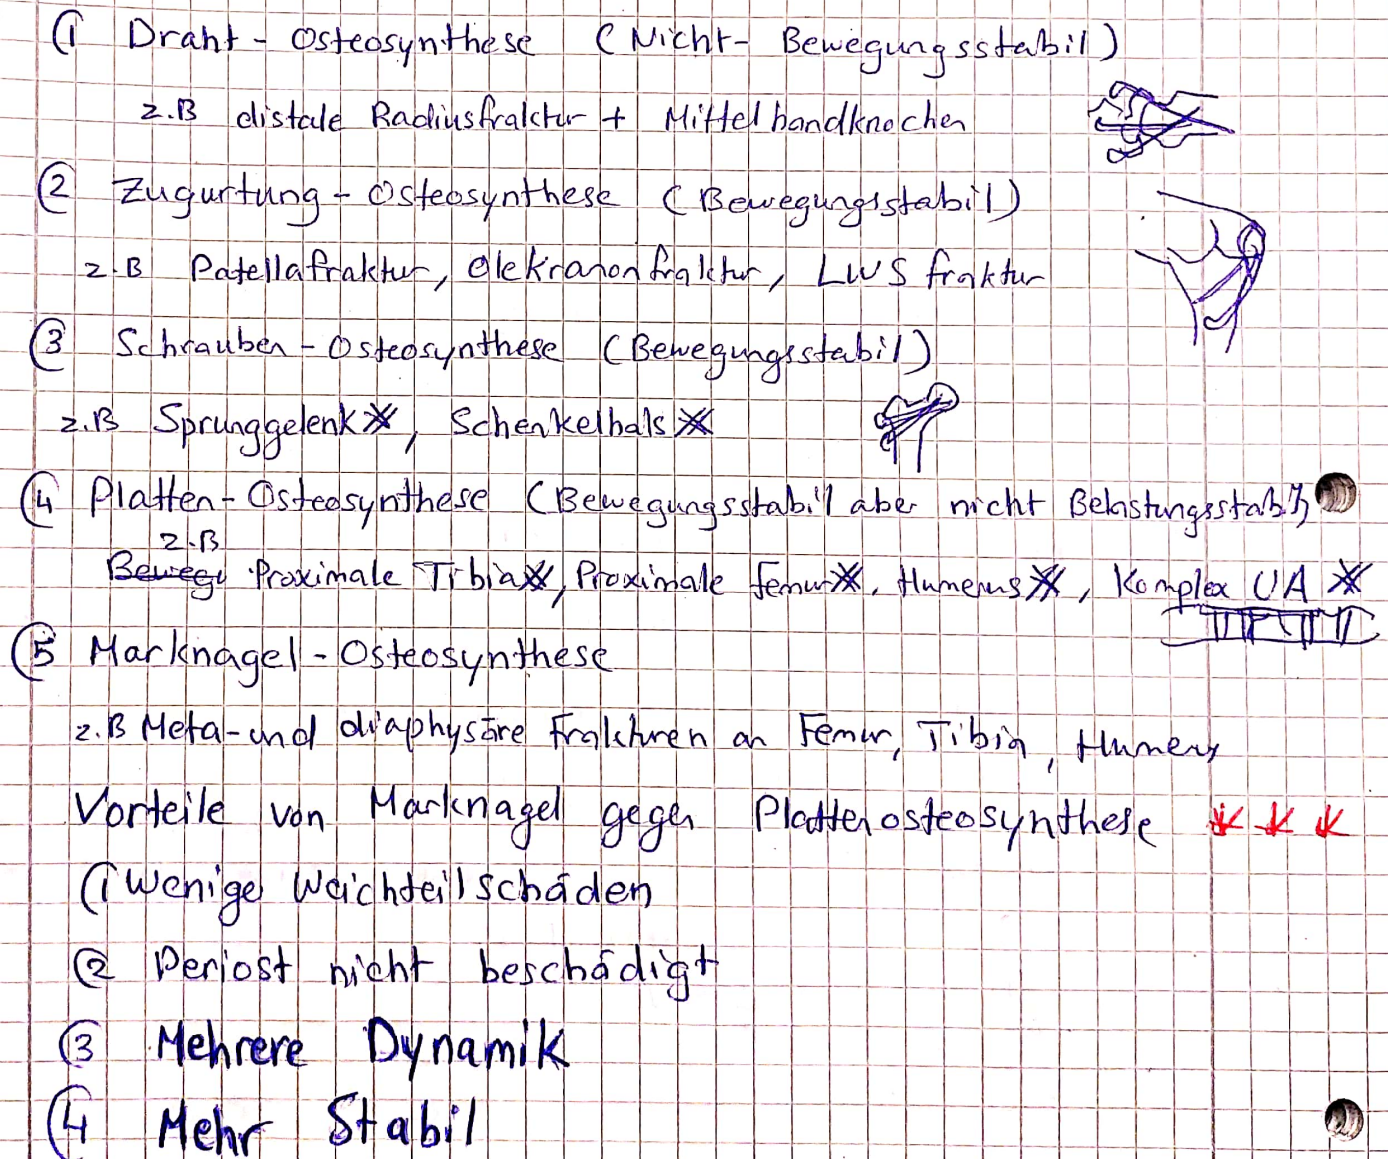 ① Draht - Osteosynthese (Nicht- Bewegungsstabil)
z.B distale Radiusfraktur + Mittelhandknochen
② Zugurtung - Osteosynthese (Bewegungsstabil)
z.B Patellafraktur, Olekranonfraktur, LWS fraktur
③ Schrauben - Osteosynthese (Bewegungsstabil)
z.B Sprunggelenk※, Schenkelhals※
④ Platten - Osteosynthese (Bewegungsstabil aber nicht Belastungsstabil)
z.B
Bewegu Proximale Tibia※, Proximale femur※, Humerus※, Komplex UA ※
⑤ Marknagel - Osteosynthese
z.B Meta- und diaphysäre Frakturen an Femur, Tibia, Humerus
Vorteile von Marknagel gegen Plattenosteosynthese * * *
① Wenige Weichteilschäden
② Periost nicht beschädigt
③ Mehrere Dynamik
④ Mehr Stabil